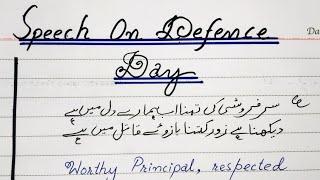 Speech On Defence
Day
سرفروشی کی تمنا اب ہمارے دل میں ہے
دیکھنا ہے زور کتنا بازوئے قاتل میں ہے
Worthy Principal, respected